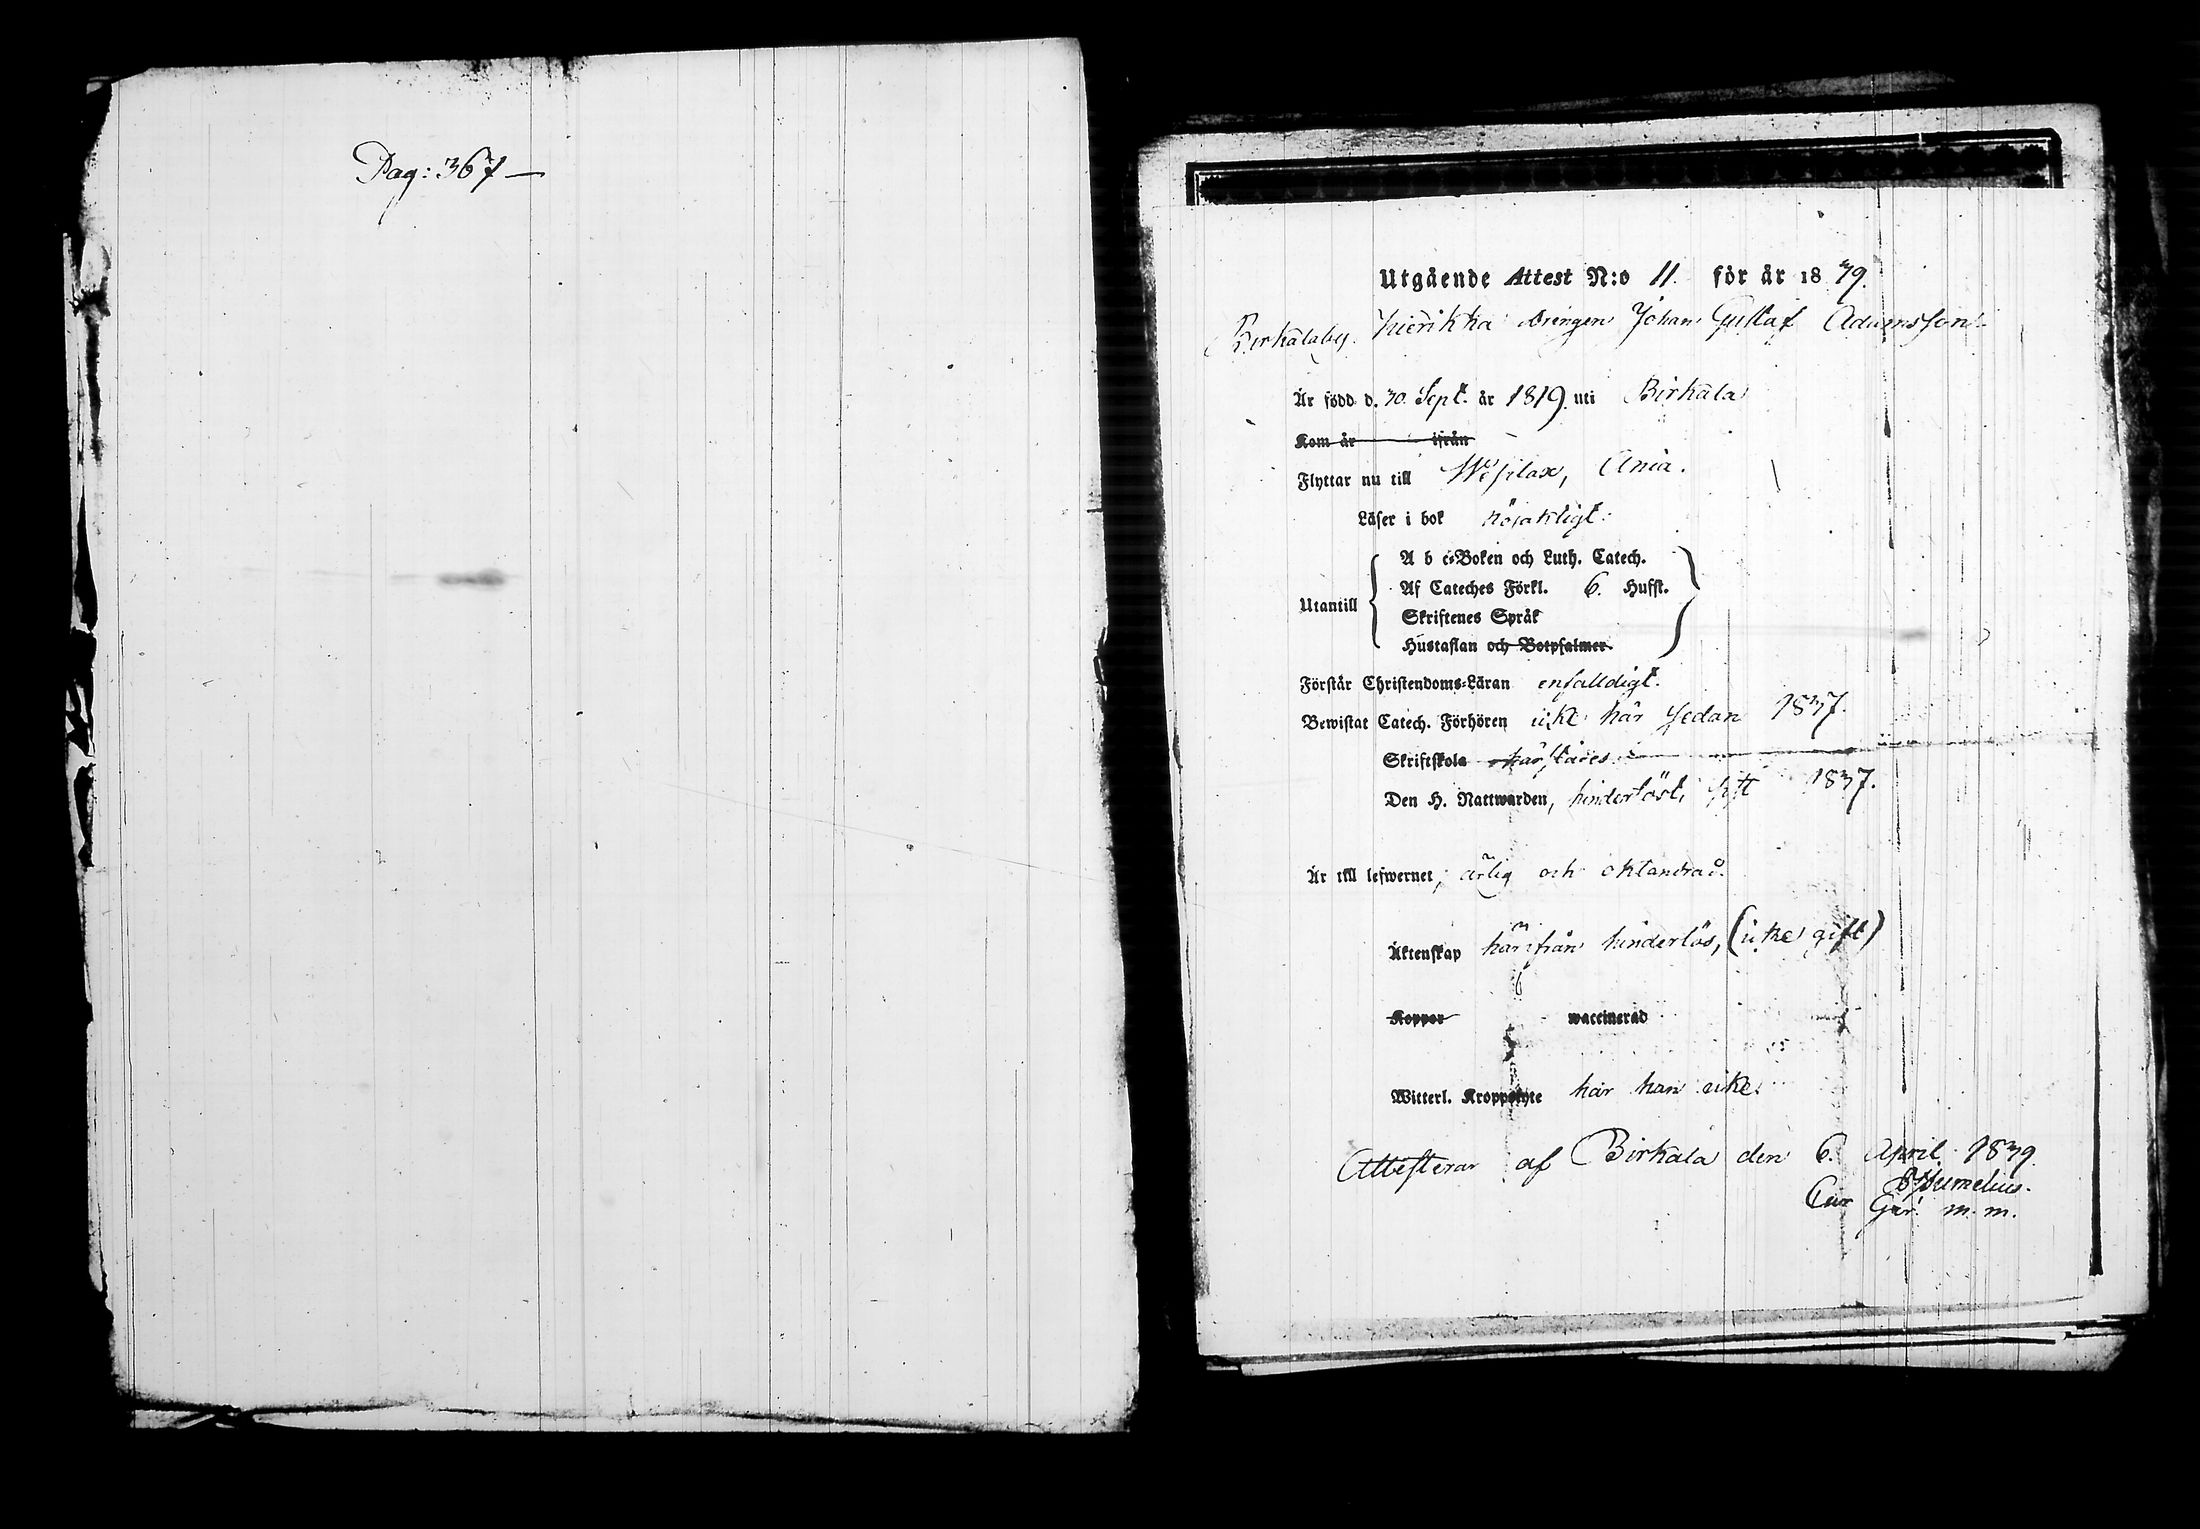 Pag: 367 —
Utgående Attest N:o 11. för år 1839.
Birkalaby. Hierikka Drengen Johan Gustaf Adamsson.
Är född d. 30. Sept. år 1819. uti Birkala
Kom år ifrån
Flyttar nu till Wesilax, Ania.
Läser i bok nöjaktigt.
A b c-Boken och Luth. Catech.
Af Cateches Förkl. 6. Hufst.
Utantill
Skriftenes Språk
Hustaflan och Botpsalmer.
Förstår Christendoms-Läran enfalldigt.
Bewistat Catech. Förhören icke här sedan 1837.
Skriftskola
Den H. Nattwarden, hinderlöst, sitt 1837.
Är till lefwernet, ärlig och oklandrad.
Äktenskap härifrån hinderlös, (icke gift)
Koppor waccinerad
Witterl. Kroppslyte har han icke.
Attesterar af Birkala den 6. April 1839.
Cur Gér. m. m.